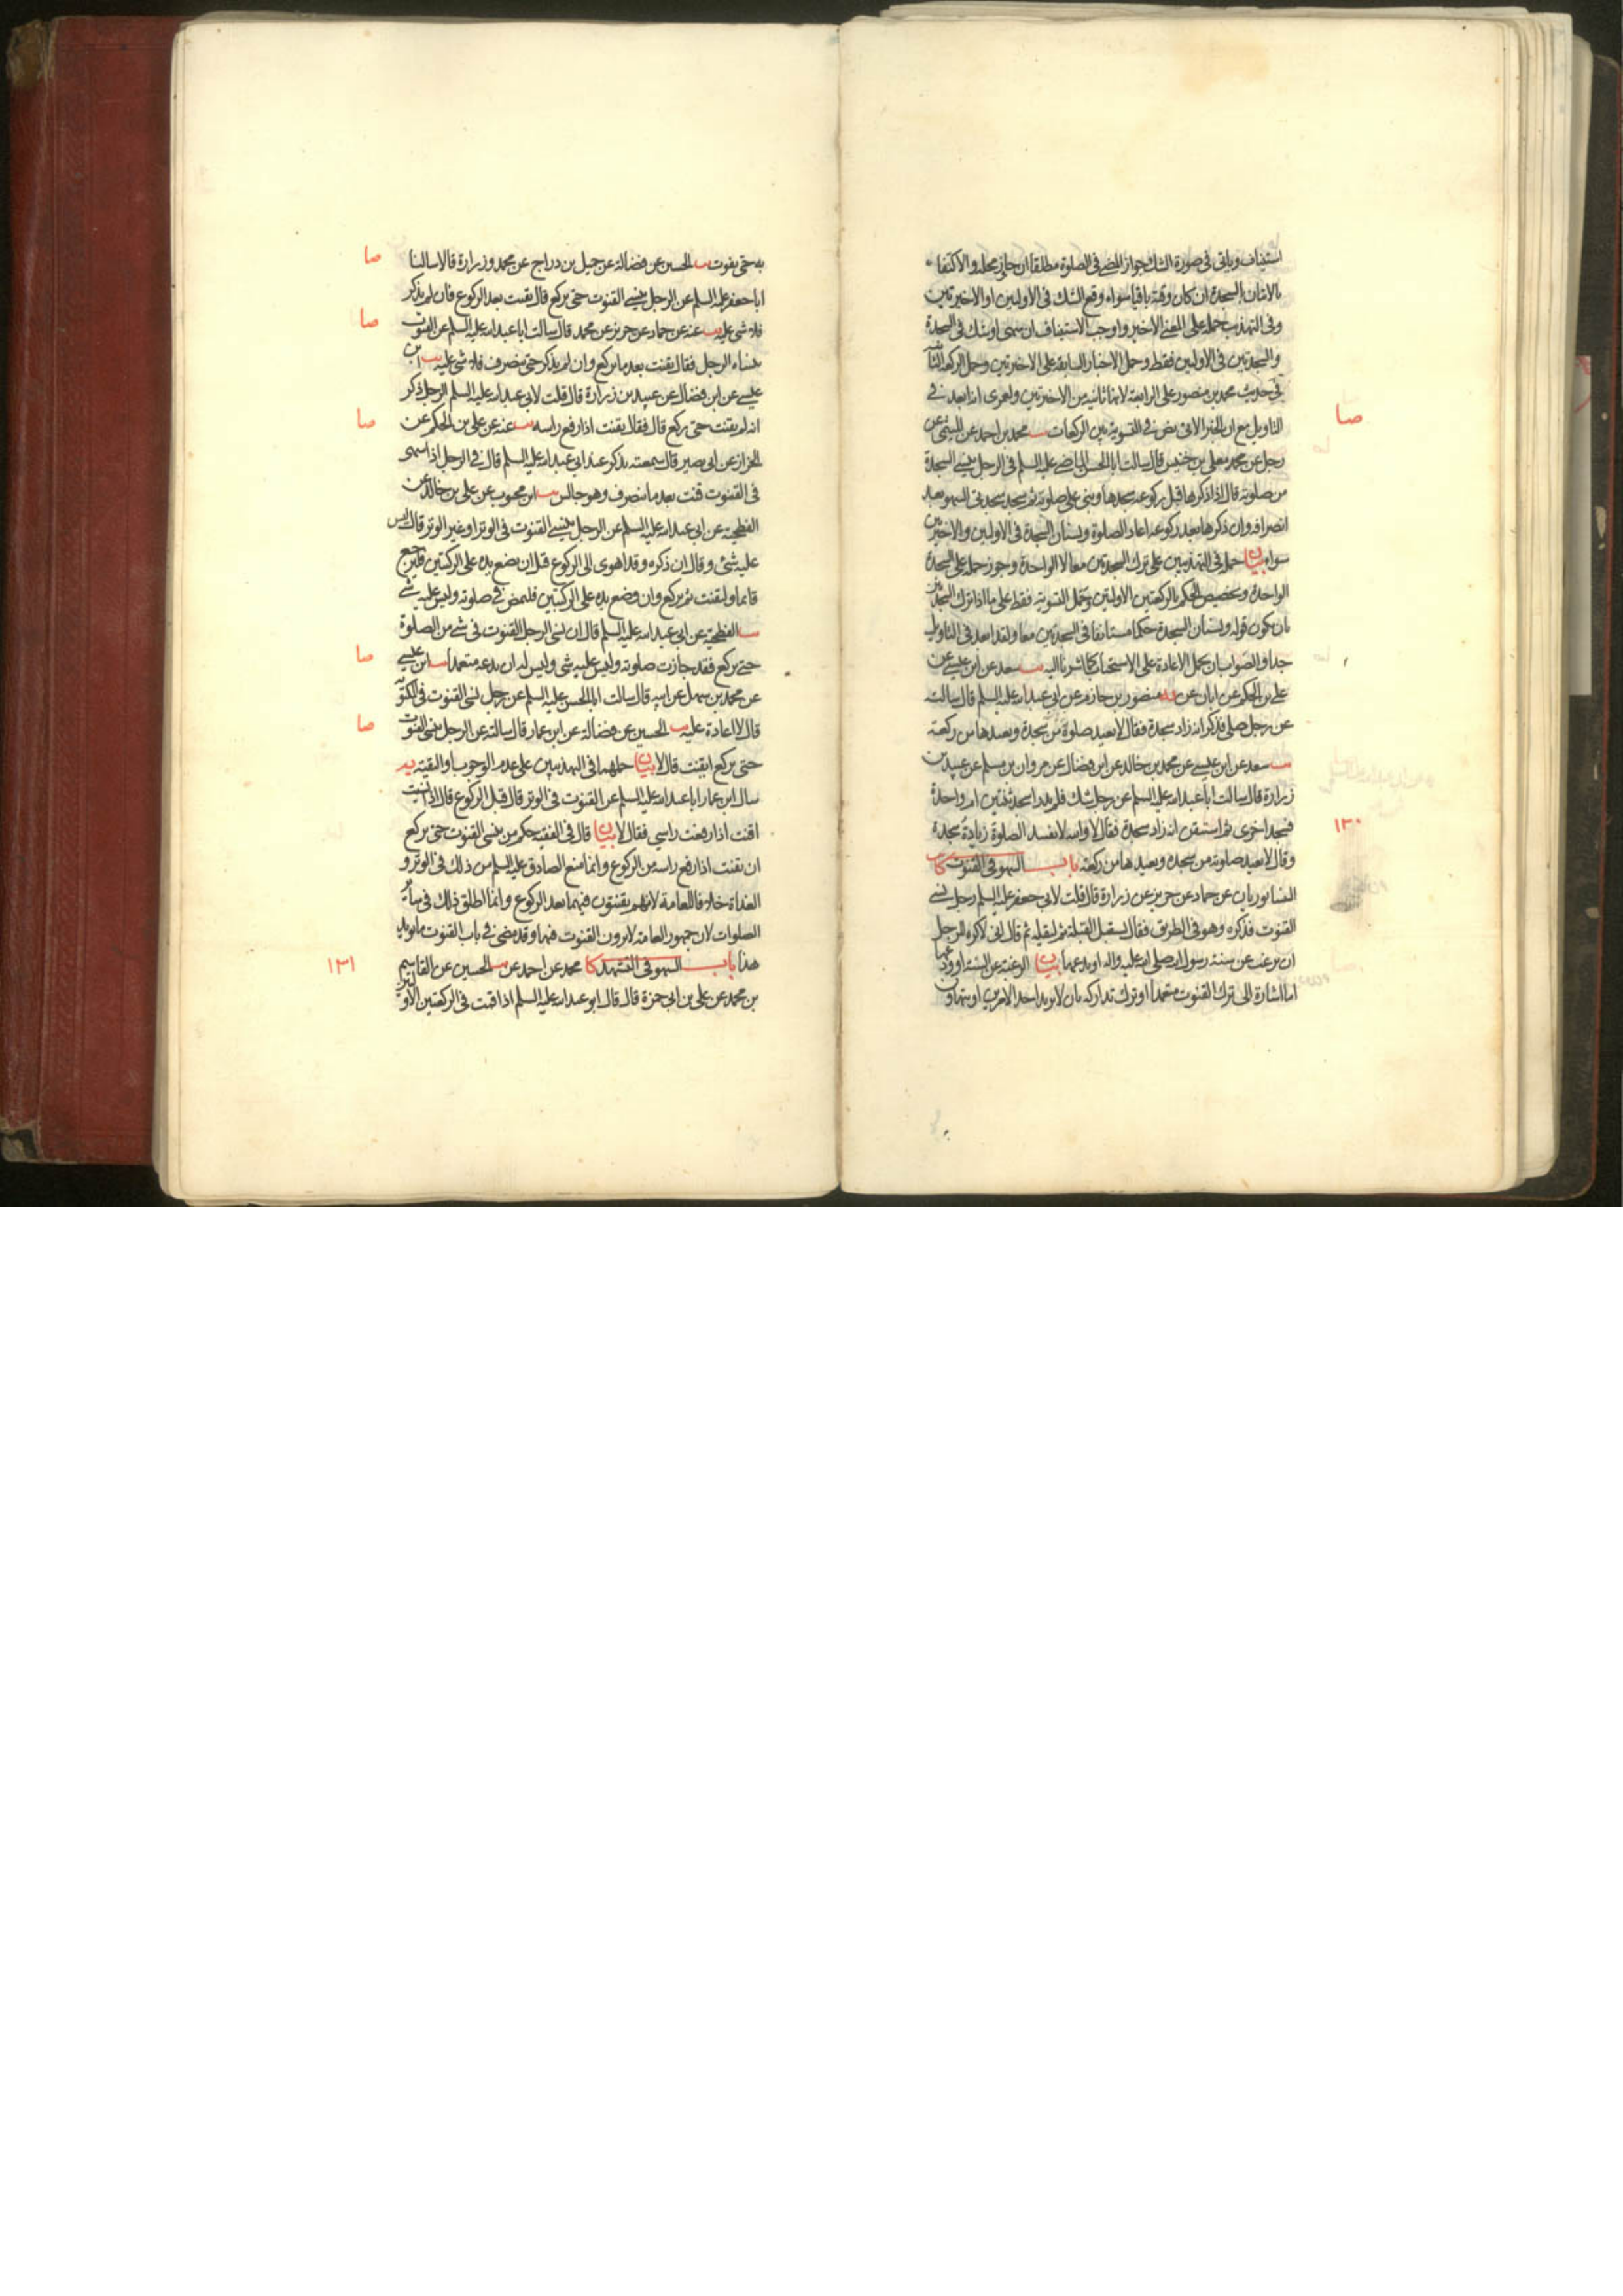 استيناف وياتى فى صورة الشك جواز المضى فى الصلوة مطلقا ان جاز محله والاكتفاء
بالاتيان بالسجدة ان كان وقته باقيا سواء وقع الشك فى الاولين او الاخيرتين
وفى التهذيب حمله على المعنى الاخير واوجب الاستيناف ان سهى او شك فى السجدة
والسجدتين فى الاوليين فقط وحمل الاخبار السابقة على الاخيرتين وحمل الركعة الثانية
فى حديث محمد بن منصور على الرابعة لانها ثانية من الاخيرتين ولعمرى انه ابعد فى
التاويل مع ان الخبر الاتى نص فى التسوية بين الركعات يب محمد بن احمد عن الميثمى عن
رجل عن محمد معلى بن خنيس قال سالت ابا الحسن الماضى عليه السلم فى الرجل ينسى السجدة
من صلوته قال اذا ذكرها قبل ركوعه سجدها وبنى على صلوته ثم سجد سجدتى السهو بعد
انصرافه وان ذكرها بعد ركوعه اعاد الصلوة ونسيان السجدة فى الاوليين والاخيرتين
سواء بيان حمله فى التهذيبين على ترك السجدتين معا لا الواحدة وجوز حمله على السجدة
الواحدة وتخصيص الحكم بالركعتين الاوليين وحمل التسوية فقط على ما اذا ترك السجدتين
بان يكون قوله ونسيان السجدة حكما مستانفا فى السجدتين معا ولقد ابعد فى التاويل
جدا والصواب ان يحمل الاعادة على الاستحباب كما اشرنا اليه يب سعد عن ابن عيسى عن
على بن الحكم عن ابان عن يه منصور بن حازم عن ابى عبد الله عليه السلم قال سالته
عن رجل صلى فذكر انه زاد سجدة فقال لا يعيد صلوة من سجدة ويعيدها من ركعة
يب سعد عن ابن عيسى عن محمد بن خالد عن ابن فضال عن مروان بن مسلم عن عبيد بن
زرارة قال سالت ابا عبد الله عليه السلم عن رجل شك فلم يدر اسجد ثنتين ام واحدة
فسجد اخرى ثم استيقن انه زاد سجدة فقال لا والله لا يفسد الصلوة زيادة سجدة
١٣٠
وقال لا يعيد صلوته من سجدة ويعيدها من ركعة باب السهو فى القنوت كا
النيسابوريان عن حماد عن حريز عن زرارة قال قلت لابى جعفر عليه السلم رجل نسى
القنوت فذكره وهو فى الطريق فقال يستقبل القبلة ثم ليقله ثم قال انى لاكره للرجل
ان يرغب عن سنة رسول الله صلى الله عليه واله او يدعها بيان الرغبة عن السنة او ودعها
اما اشارة الى ترك القنوت متعمدا او ترك تداركه بان لا يريد احد الامرين او يتهاون
صا
به حتى يفوت يب الحسين عن فضالة عن جميل بن دراج عن محمد وزرارة قالا سالنا
صا
ابا جعفر عليه السلم عن الرجل ينسى القنوت حتى يركع قال يقنت بعد الركوع فان لم يذكر
فلا شى عليه يب عنه عن حماد عن حريز عن محمد قال سالت ابا عبد الله عليه السلم عن القنوت
صا
ينساه الرجل فقال يقنت بعد ما يركع وان لم يذكر حتى ينصرف فلا شى عليه يب ابن
عيسى عن ابن فضال عن عبيد بن زرارة قال قلت لابى عبد الله عليه السلم الرجل ذكر
انه لم يقنت حتى يركع قال فقال يقنت اذا رفع راسه يب عنه عن على بن الحكم عن
صا
الخزاز عن ابى بصير قال سمعته يذكر عند ابى عبد الله عليه السلم قال فى الرجل اذا سهى
فى القنوت قنت بعد ما ينصرف وهو جالس يب ابن محبوب عن على بن خالد عن
الفطحية عن ابى عبد الله عليه السلم عن الرجل ينسى القنوت فى الوتر او غير الوتر قال ليس
عليه شئ وقال ان ذكره وقد اهوى الى الركوع قبل ان يضع يده على الركبتين فليرجع
قايما وليقنت ثم يركع وان وضع يده على الركبتين فليمض فى صلوته وليس عليه شى
يب الفطحية عن ابى عبد الله عليه السلم قال ان نسى الرجل القنوت فى شى من الصلوة
حتى يركع فقد جازت صلوته وليس عليه شى وليس له ان يدعه متعمدا يب ابن عيسى
صا
عن محمد بن سهل عن ابيه قال سالت ابا الحسن عليه السلم عن رجل نسى القنوت فى المكتوبة
قال لا اعادة عليه يب الحسين عن فضالة عن ابن عمار قال سالته عن الرجل ينسى القنوت
صا
حتى يركع ايقنت قال لا بيان حملهما فى التهذيبين على عدم الوجوب او التقية يه
سال ابن عمار ابا عبد الله عليه السلم عن القنوت فى الوتر قال قبل الركوع قال اذا نسيت
اقنت اذا رفعت راسى فقال لا بيان قال فى الفقيه حكم من ينسى القنوت حتى يركع
ان يقنت اذا رفع راسه من الركوع وانما منع الصادق عليه السلم من ذلك فى الوتر و
الغداة خلافا للعامة لانهم يقنتون فيهما بعد الركوع وانما اطلق ذلك فى ساير
الصلوات لان جمهور العامة لا يرون القنوت فيها وقد مضى فى باب القنوت ما يويد
هذا باب السهو فى التشهد كا محمد عن احمد عن يب الحسين عن القاسم
١٣١
بن محمد عن على بن ابى حمزة قال قال ابو عبد الله عليه السلم اذا قمت فى الركعتين الاوليين